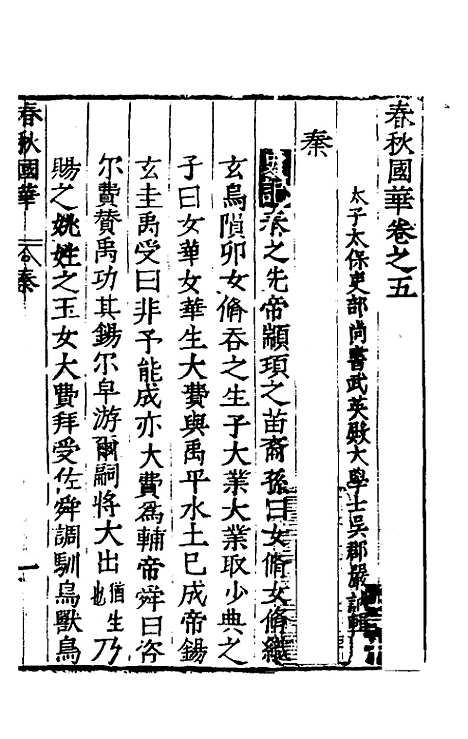 春秋國華卷之五
太子太保吏部尚書武英殿大學士吳郡嚴訥輯
秦
史記秦之先帝顓頊之苗裔孫曰女脩女脩織
玄鳥隕卵女脩吞之生子大業大業取少典之
子曰女華女華生大費與禹平水土已成帝錫
玄圭禹受曰非予能成亦大費為輔帝舜曰咨
尔費贊禹功其錫尔皁游爾嗣將大出猶生也乃
賜之姚姓之玉女大費拜受佐舜調馴鳥獸鳥
春秋國華 秦 一